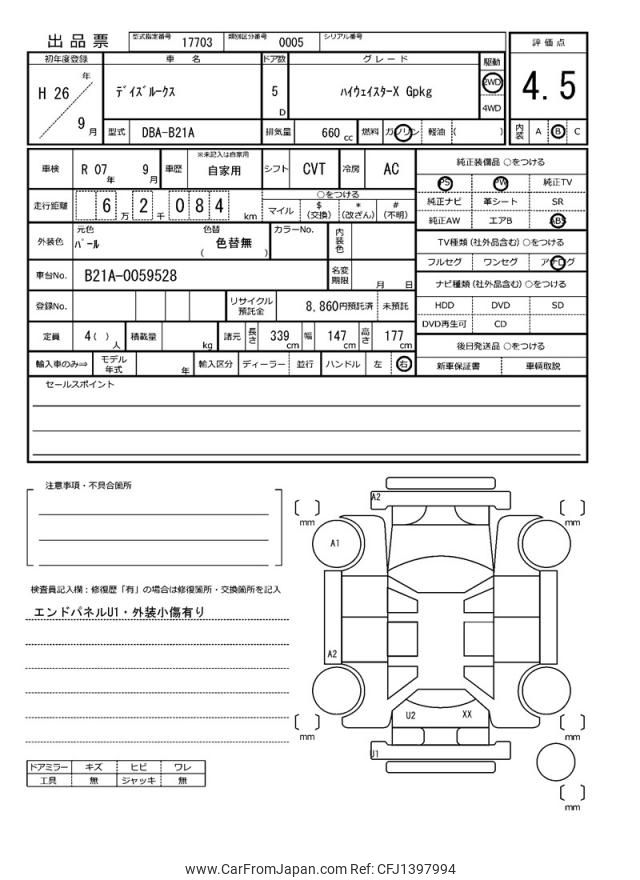 出品票 型式指定番号 17703 類別区分番号 0005 シリアル番号
初年度登録 車名 ドア数 グレード 駆動 評価点
H 26 年 9 月 ﾃﾞｲｽﾞﾙｰｸｽ 5 D ﾊｲｳｪｲｽﾀｰX Gpkg 2WD 4WD 4.5
型式 DBA-B21A 排気量 660 cc 燃料 ガソリン 軽油 ( ) 内装 A B C
車検 R 07 年 9 月 車歴 ※未記入は自家用 自家用 シフト CVT 冷房 AC 純正装備品 ○をつける
PS PW 純正TV
走行距離 6 万 2 千 0 8 4 km ○をつける 純正ナビ 革シート SR
マイル $ (交換) * (改ざん) # (不明) 純正AW エアB ABS
外装色 元色 ﾊﾟｰﾙ 色替 色替無 ( ) カラーNo. 内装色 TV種類 (社外品含む) ○をつける
フルセグ ワンセグ アナログ
車台No. B21A-0059528 名変期限 月 日 ナビ種類 (社外品含む) ○をつける
登録No. リサイクル預託金 8,860円預託済 未預託 HDD DVD SD
DVD再生可 CD
定員 4 ( ) 人 積載量 kg 諸元 長さ 339 cm 幅 147 cm 高さ 177 cm 後日発送品 ○をつける
輸入車のみ⇒ モデル年式 年 輸入区分 ディーラー 並行 ハンドル 左 右 新車保証書 車輌取説
セールスポイント
注意事項・不具合箇所
A2
mm mm
A1
検査員記入欄：修復歴「有」の場合は修復箇所・交換箇所を記入
エンドパネルU1・外装小傷有り
A2
U2 XX
mm mm
U1
ドアミラー キズ ヒビ ワレ
工具 無 ジャッキ 無
mm
www.CarFromJapan.com Ref: CFJ1397994